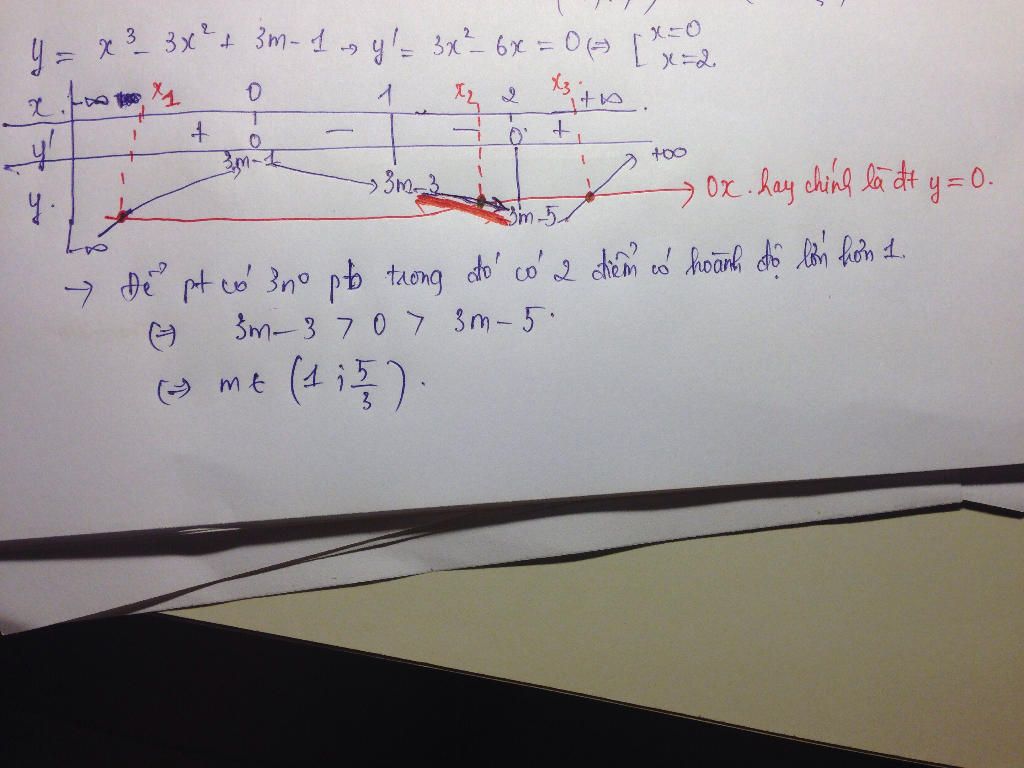 y = x³ - 3x² + 3m - 1 → y' = 3x² - 6x = 0 (=) [ x=0
x=2.
x -∞ x1 0 1 x2 2 x3 +∞
y' + 0 - - 0 +
y -∞ 3m-1 3m-3 3m-5 +∞
0x. hay chính là đt y = 0.
→ Để pt có 3n⁰ pb trong đó có 2 điểm có hoành độ lớn hơn 1.
(=) 3m - 3 > 0 > 3m - 5.
(=) m ∈ (1 ; 5/3).